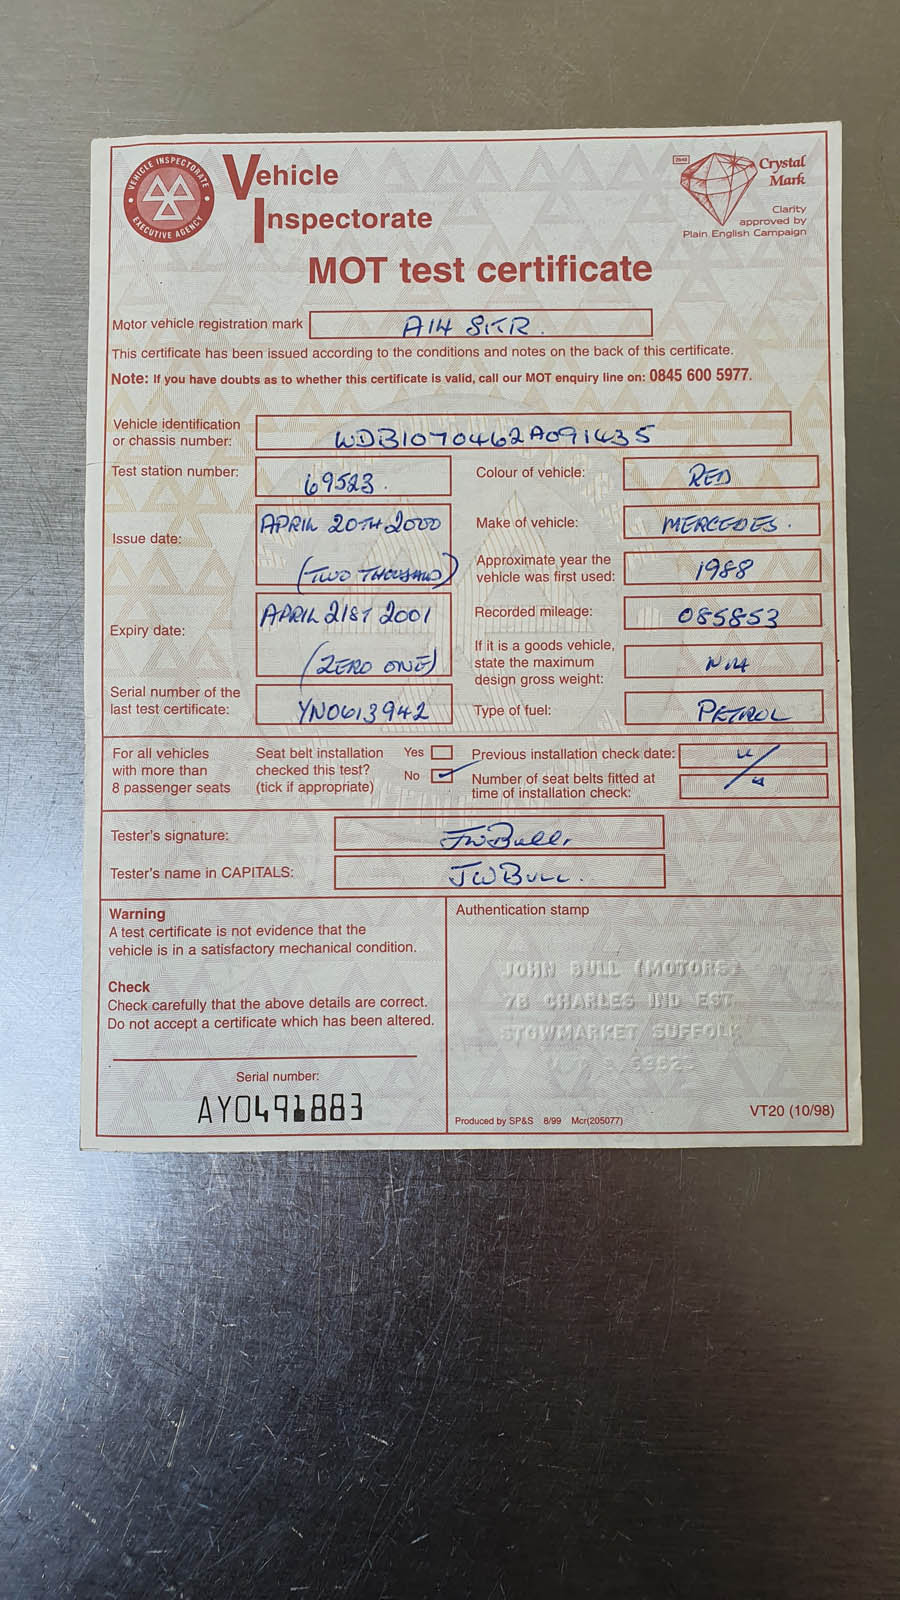 VEHICLE INSPECTORATE
EXECUTIVE AGENCY
Vehicle
Inspectorate
2940
Crystal
Mark
Clarity
approved by
Plain English Campaign
MOT test certificate
Motor vehicle registration mark A14 SKR.
This certificate has been issued according to the conditions and notes on the back of this certificate.
Note: If you have doubts as to whether this certificate is valid, call our MOT enquiry line on: 0845 600 5977.
Vehicle identification
or chassis number: WDB1070462A091435
Test station number: 69523.
Colour of vehicle: RED
Issue date: APRIL 20TH 2000
(TWO THOUSAND)
Make of vehicle: MERCEDES.
Approximate year the
vehicle was first used: 1988
Expiry date: APRIL 21ST 2001
(ZERO ONE)
Recorded mileage: 085853
If it is a goods vehicle,
state the maximum
design gross weight: N/A
Serial number of the
last test certificate: YN0613942
Type of fuel: PETROL
For all vehicles
with more than
8 passenger seats
Seat belt installation
checked this test?
(tick if appropriate)
Yes
No
Previous installation check date:
Number of seat belts fitted at
time of installation check:
Tester's signature: JWBull.
Tester's name in CAPITALS: JW BULL.
Warning
A test certificate is not evidence that the
vehicle is in a satisfactory mechanical condition.
Check
Check carefully that the above details are correct.
Do not accept a certificate which has been altered.
Serial number:
AY0491883
Authentication stamp
JOHN BULL (MOTORS)
7B CHARLES IND EST
STOWMARKET SUFFOLK
69523
Produced by SP&S 8/99 Mcr(205077)
VT20 (10/98)